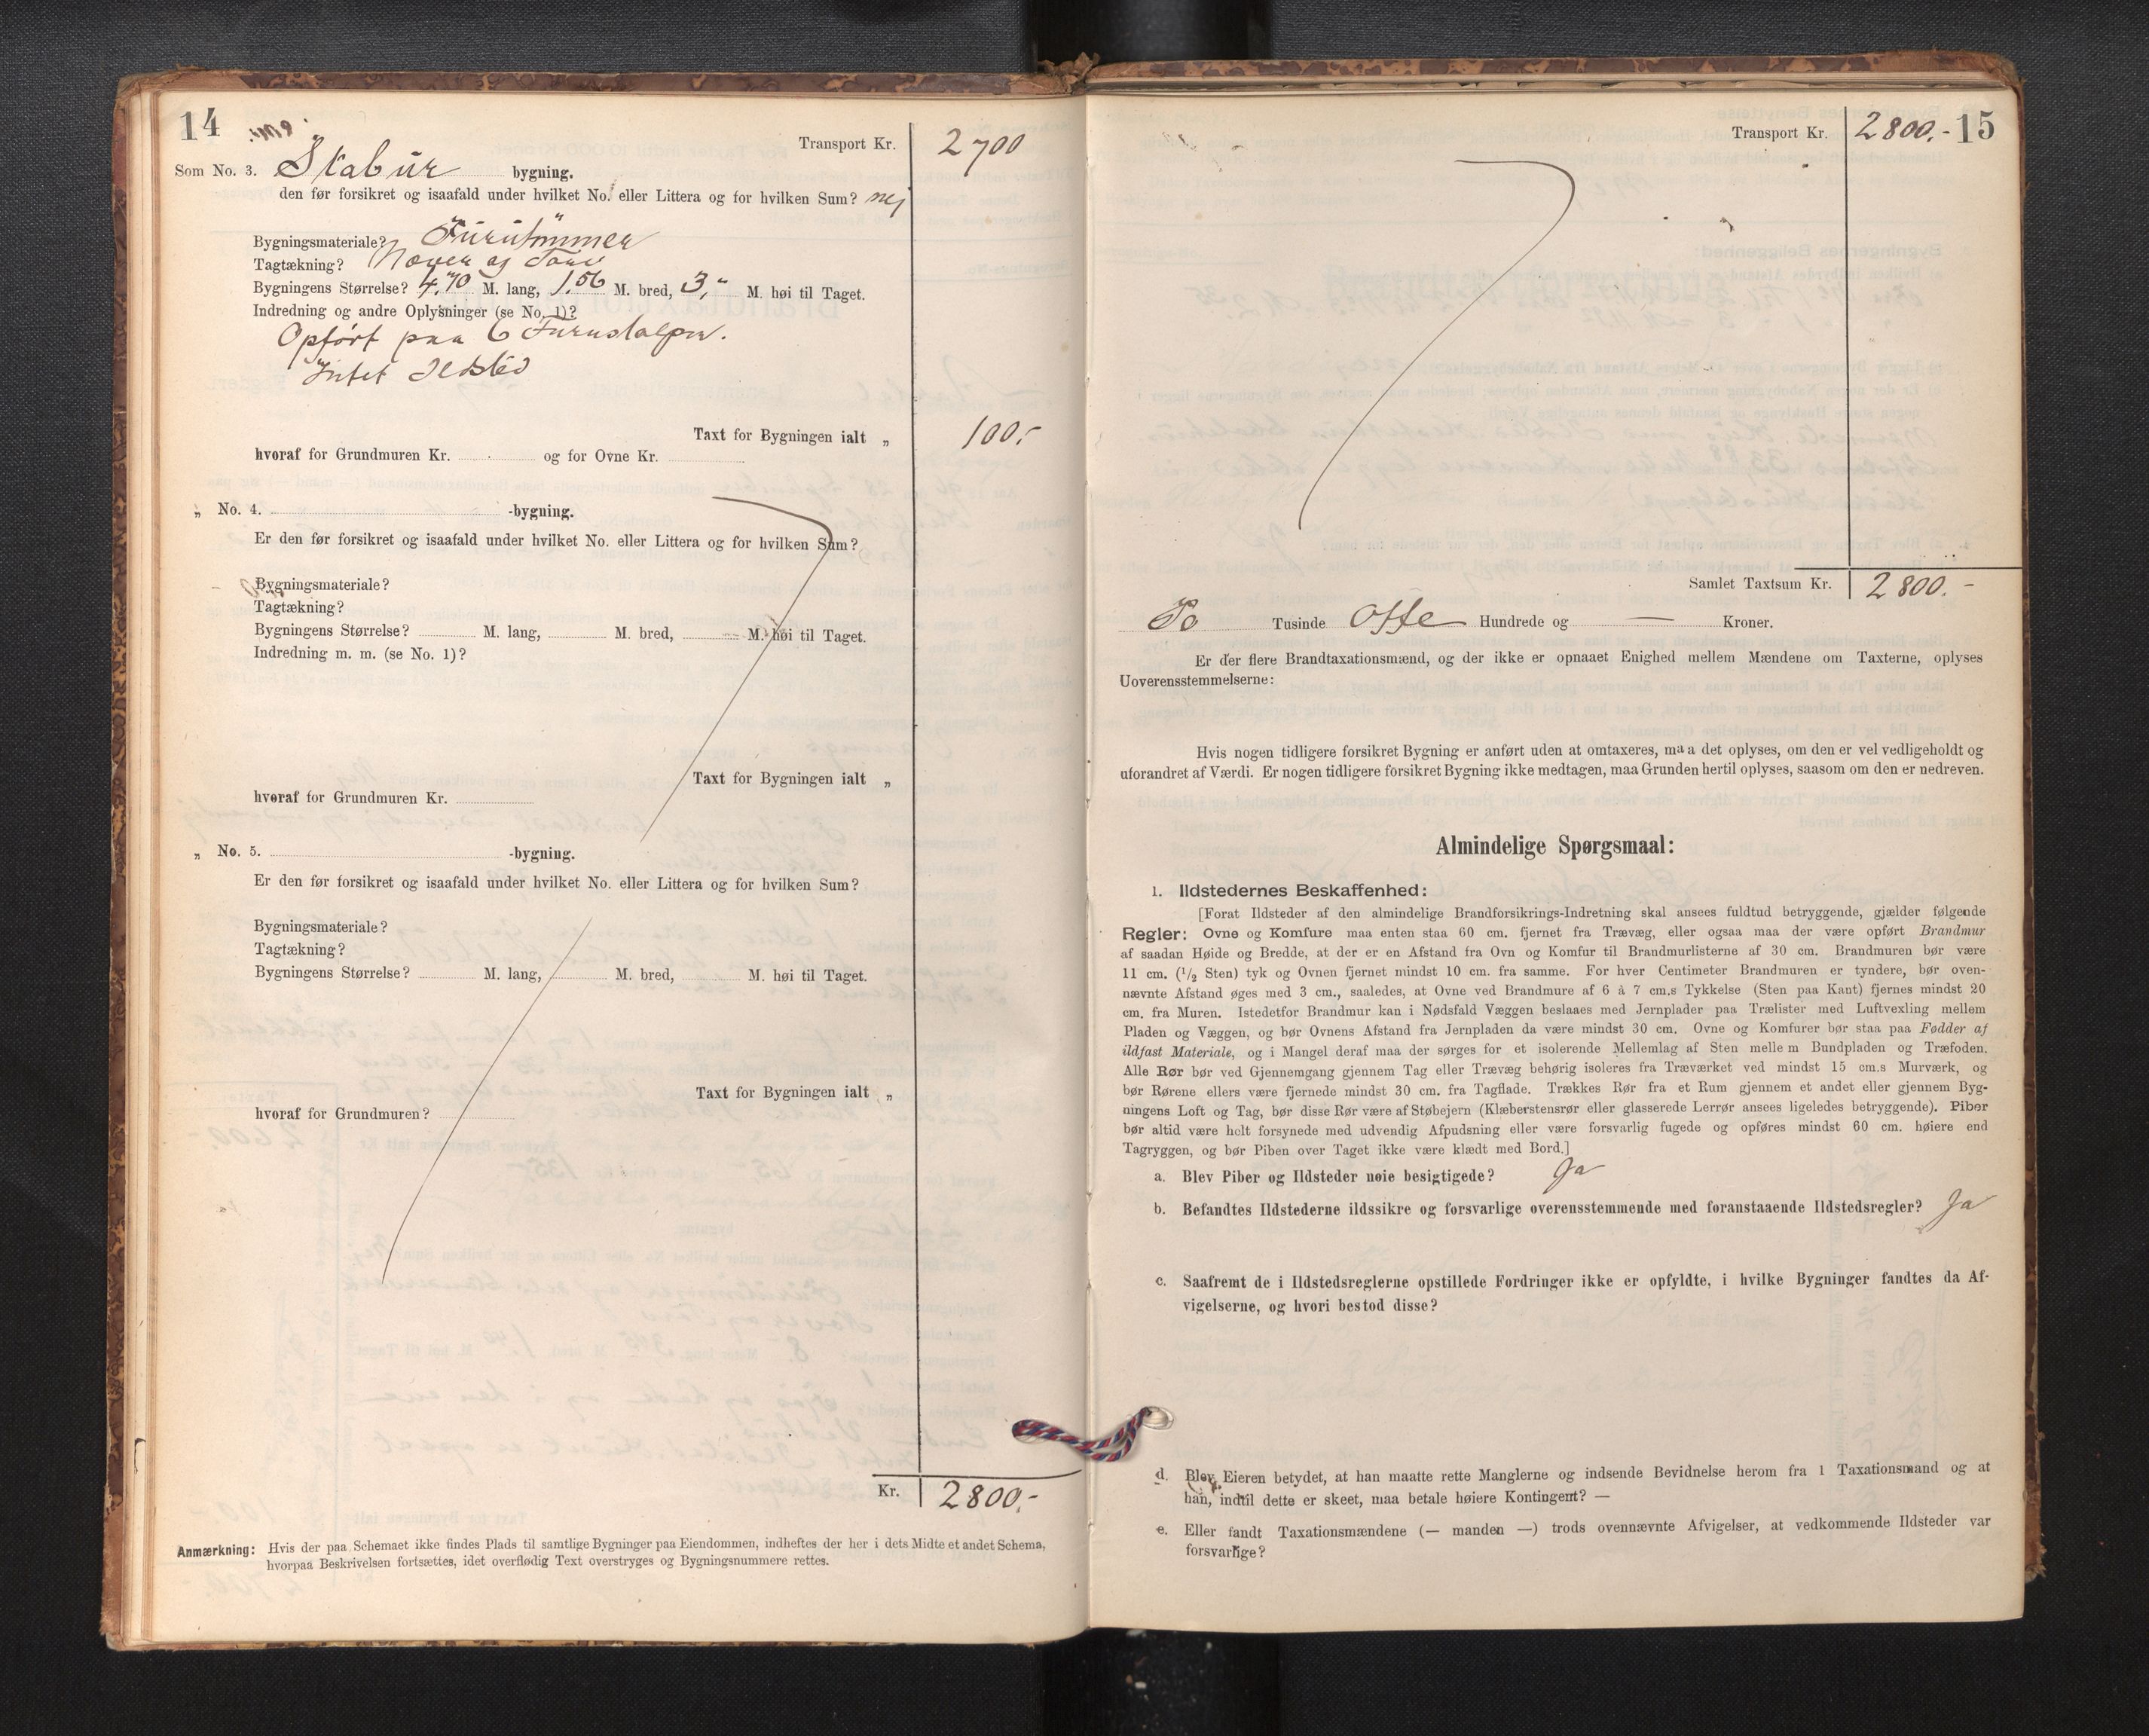 14
Transport Kr. 2700
Som No. 3. Stabur bygning.
den før forsikret og isaafald under hvilket No. eller Littera og for hvilken Sum? nej
Bygningsmateriale? Furutømmer
Tagtækning? Næver og Torv
Bygningens Størrelse? 4,70 M. lang, 1,56 M. bred, 3,- M. høi til Taget.
Indredning og andre Oplysninger (se No. 1)?
Opført paa 6 Furustolper.
Intet Ildsted
Taxt for Bygningen ialt „ 100,-
hvoraf for Grundmuren Kr. og for Ovne Kr.
„ No. 4. -bygning.
Er den før forsikret og isaafald under hvilket No. eller Littera og for hvilken Sum?
Bygningsmateriale?
Tagtækning?
Bygningens Størrelse? M. lang, M. bred, M. høi til Taget.
Indredning m. m. (se No. 1)?
Taxt for Bygningen ialt „
hvoraf for Grundmuren Kr.
„ No. 5. -bygning.
Er den før forsikret og isaafald under hvilket No. eller Littera og for hvilken Sum?
Bygningsmateriale?
Tagtækning?
Bygningens Størrelse? M. lang, M. bred, M. høi til Taget.
Taxt for Bygningen ialt „
hvoraf for Grundmuren?
Kr. 2800,-
Anmærkning: Hvis der paa Schemaet ikke findes Plads til samtlige Bygninger paa Eiendommen, indheftes der her i dets Midte et andet Schema,
hvorpaa Beskrivelsen fortsættes, idet overflødig Text overstryges og Bygningsnummere rettes.
Transport Kr. 2800,- 15
Samlet Taxtsum Kr. 2800.-
To Tusinde Otte Hundrede og — Kroner.
Er der flere Brandtaxationsmænd, og der ikke er opnaaet Enighed mellem Mændene om Taxterne, oplyses
Uoverensstemmelserne:
Hvis nogen tidligere forsikret Bygning er anført uden at omtaxeres, maa det oplyses, om den er vel vedligeholdt og
uforandret af Værdi. Er nogen tidligere forsikret Bygning ikke medtagen, maa Grunden hertil oplyses, saasom om den er nedreven.
Almindelige Spørgsmaal:
1. Ildstedernes Beskaffenhed:
[Forat Ildsteder af den almindelige Brandforsikrings-Indretning skal ansees fuldtud betryggende, gjælder følgende
Regler: Ovne og Komfure maa enten staa 60 cm. fjernet fra Trævæg, eller ogsaa maa der være opført Brandmur
af saadan Høide og Bredde, at der er en Afstand fra Ovn og Komfur til Brandmurlisterne af 30 cm. Brandmuren bør være
11 cm. (1/2 Sten) tyk og Ovnen fjernet mindst 10 cm. fra samme. For hver Centimeter Brandmuren er tyndere, bør oven-
nævnte Afstand øges med 3 cm., saaledes, at Ovne ved Brandmure af 6 à 7 cm.s Tykkelse (Sten paa Kant) fjernes mindst 20
cm. fra Muren. Istedetfor Brandmur kan i Nødsfald Væggen beslaaes med Jernplader paa Trælister med Luftvexling mellem
Pladen og Væggen, og bør Ovnens Afstand fra Jernpladen da være mindst 30 cm. Ovne og Komfurer bør staa paa Fødder af
ildfast Materiale, og i Mangel deraf maa der sørges for et isolerende Mellemlag af Sten mellem Bundpladen og Træfoden.
Alle Rør bør ved Gjennemgang gjennem Tag eller Trævæg behørig isoleres fra Træværket ved mindst 15 cm.s Murværk, og
bør Rørene ellers være fjernede mindst 30 cm. fra Tagflade. Trækkes Rør fra et Rum gjennem et andet eller gjennem Byg-
ningens Loft og Tag, bør disse Rør være af Støbejern (Klæberstensrør eller glasserede Lerrør ansees ligeledes betryggende). Piber
bør altid være helt forsynede med udvendig Afpudsning eller være forsvarlig fugede og opføres mindst 60 cm. høiere end
Tagryggen, og bør Piben over Taget ikke være klædt med Bord.]
a. Blev Piber og Ildsteder nøie besigtigede? Ja
b. Befandtes Ildstederne ildssikre og forsvarlige overensstemmende med foranstaaende Ildstedsregler? Ja
c. Saafremt de i Ildstedsreglerne opstillede Fordringer ikke er opfyldte, i hvilke Bygninger fandtes da Af-
vigelserne, og hvori bestod disse?
d. Blev Eieren betydet, at han maatte rette Manglerne og indsende Bevidnelse herom fra 1 Taxationsmand og at
han, indtil dette er skeet, maa betale høiere Kontingent? —
e. Eller fandt Taxationsmændene (— manden —) trods ovennævnte Afvigelser, at vedkommende Ildsteder var
forsvarlige?